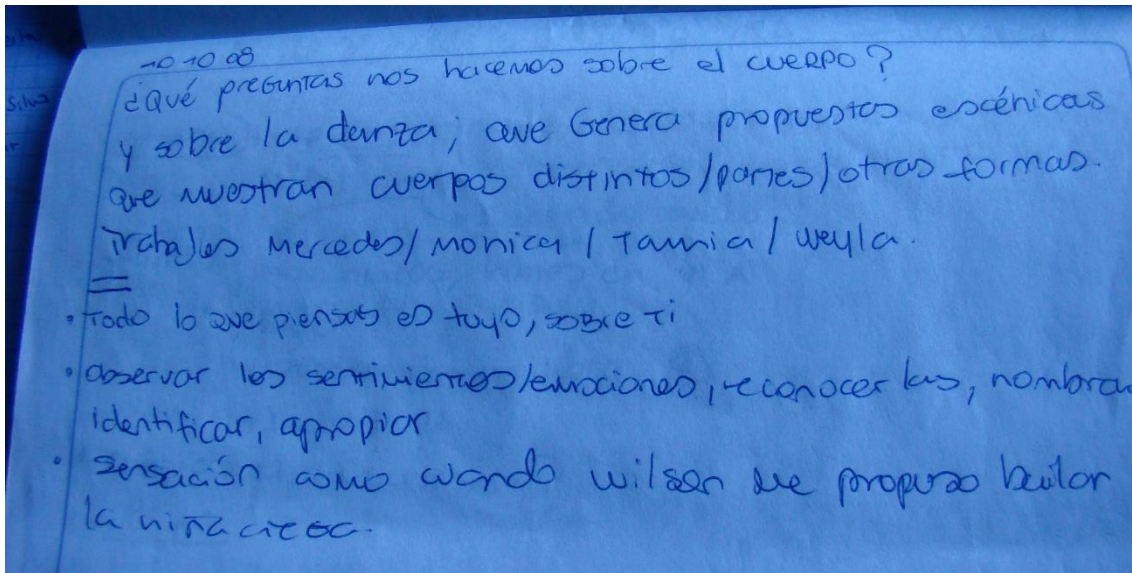 10 10 08
¿Qué preguntas nos hacemos sobre el cuerpo?
y sobre la danza, que Genera propuestas escénicas
que muestran cuerpos distintos/partes/otras formas.
Trabajos Mercedes/Monica/Tamia/Weyla.
• Todo lo que piensas es tuyo, sobre ti
• observar los sentimientos/emociones, reconocerlas, nombra
identificar, apropiar
• sensación como cuando wilson me propuso bailar
la niña ciega.
Silva